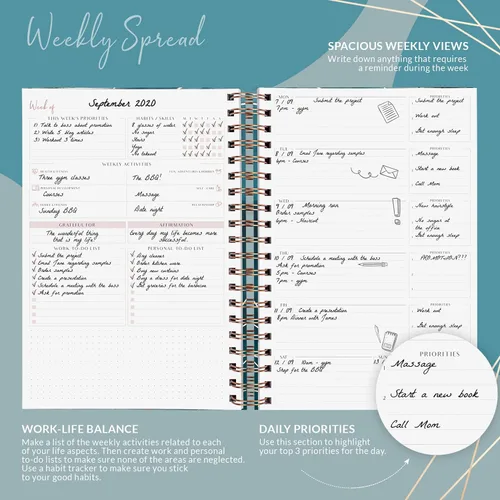 Weekly Spread
SPACIOUS WEEKLY VIEWS
Write down anything that requires
a reminder during the week
Week of
September 2020
THIS WEEK'S PRIORITIES
1) Talk to boss about promotion
2) Write 5 blog articles
3) Workout 3 times
HABITS / SKILLS
8 glasses of water
No sugar
Stairs
Yoga
No takeout
WEEKLY ACTIVITIES
Three gym classes
The BBQ!
Courses
Massage
Sunday BBQ
Date night
GRATEFUL FOR
The wonderful thing
that is my life!
AFFIRMATION
Every day my life becomes more
successful.
WORK TO-DO LIST
Submit the project
Email Jane regarding samples
Order samples
Create a presentation
Schedule a meeting with the boss
Ask for promotion
PERSONAL TO-DO LIST
Dog cleaner
Order kitchen ware
Buy new curtains
Buy a dress for date night
Get groceries for the barbecue
MON
7 / 09
Submit the project
7pm - gym
PRIORITIES
Submit the project
Work out
Get enough sleep
TUE
8 / 09
Email Jane regarding samples
6pm - Courses
PRIORITIES
Massage
Start a new book
Call Mom
WED
9 / 09
Morning run
Order samples
6pm - Haircut
PRIORITIES
New hairstyle
No sugar at
the office
Get enough sleep
THU
10 / 09
Schedule a meeting with the boss
Ask for promotion
5pm - Courses
7pm - gym
PRIORITIES
PROMOTION!!!
FRI
11 / 09
Create a presentation
8pm Dinner with James
PRIORITIES
Work out
Get enough sleep
SAT
12 / 09
10am - gym
Shop for the BBQ
PRIORITIES
Massage
Start a new book
Call Mom
WORK-LIFE BALANCE
Make a list of the weekly activities related to each
of your life aspects. Then create work and personal
to-do lists to make sure none of the areas are neglected.
Use a habit tracker to make sure you stick
to your good habits.
DAILY PRIORITIES
Use this section to highlight
your top 3 priorities for the day.